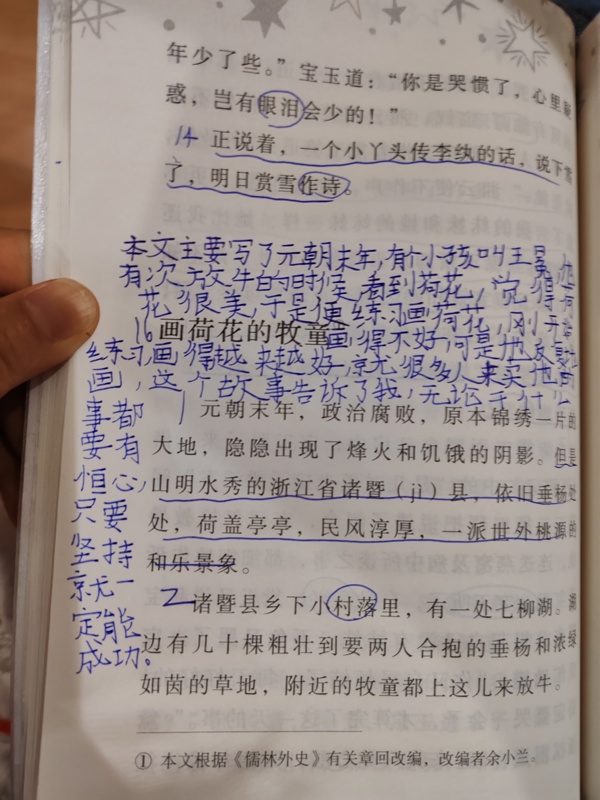 年少了些。”宝玉道：“你是哭惯了，心里疑
惑，岂有眼泪会少的！”
14 正说着，一个小丫头传李纨的话，说下雪
了，明日赏雪作诗。
本文主要写了元朝末年，有个小孩叫王冕，他
有次放牛的时候，看到荷花，觉得荷
花很美，于是便练习画荷花，刚开始
16 画荷花的牧童①
画得不好，可是他反
练习画得越来越好，京尤很多人来买他的
画，这个故事告诉了我，无论干什么
事都
要有
恒心，
只要
坚持
京尤一
定能
成功。
1 元朝末年，政治腐败，原本锦绣一片的
大地，隐隐出现了烽火和饥饿的阴影。但是
山明水秀的浙江省诸暨（jì）县，依旧垂杨处
处，荷盖亭亭，民风淳厚，一派世外桃源的
和乐景象。
2 诸暨县乡下小村落里，有一处七柳湖。湖
边有几十棵粗壮到要两人合抱的垂杨和浓绿
如茵的草地，附近的牧童都上这儿来放牛。
① 本文根据《儒林外史》有关章回改编，改编者余小兰。